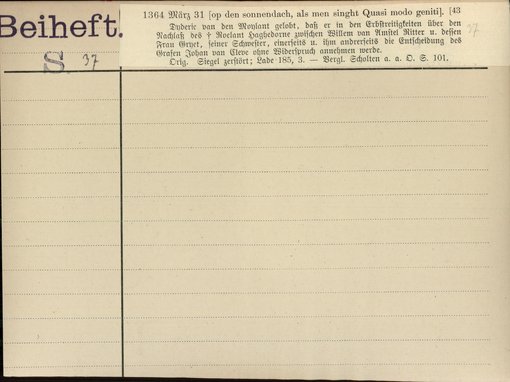 Beiheft.
S. 37
1364 März 31 [op den sonnendach, als men singht Quasi modo geniti]. [43
Dyderic van den Moylant gelobt, daß er in den Erbstreitigkeiten über den
Nachlaß des † Roelant Haghedorne zwischen Willem van Amstel Ritter u. dessen
Frau Gruet, seiner Schwester, einerseits u. ihm andrerseits die Entscheidung des
Grafen Johan van Cleve ohne Widerspruch annehmen werde.
Orig. Siegel zerstört; Lade 185, 3. — Vergl. Scholten a. a. O. S. 101.
37